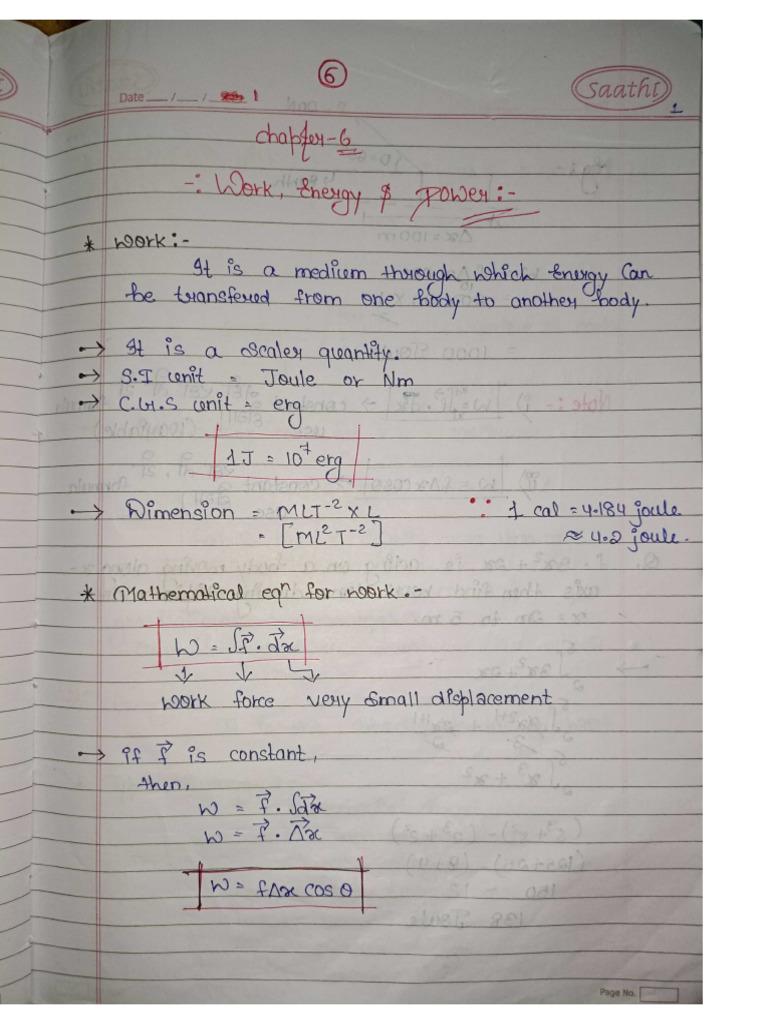 6
Date __/__/__ 1
saathi
1
Chapter-6
-: Work, Energy & Power:-
* Work:-
It is a medium through which Energy Can
be transfered from one body to another body.
→ It is a Scaler quantity.
→ S.I unit = Joule or Nm
→ C.G.S unit = erg
1J = 10⁷ erg
→ Dimension = MLT⁻² × L
= [ML²T⁻²]
∵ 1 cal = 4.184 joule
≈ 4.2 joule.
* Mathematical eqⁿ for work.-
W = ∫f⃗ · d⃗x
↓ ↓ ↳
work force very small displacement
→ if f⃗ is constant,
then,
W = f⃗ · ∫d⃗x
W = f⃗ · Δ⃗x
W = fΔx cos θ
Page No.